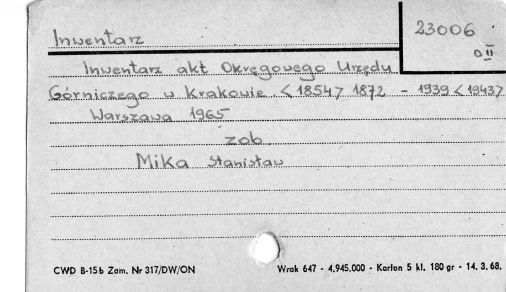 Inwentarz
23006
0 II
Inwentarz akt Okręgowego Urzędu
Górniczego w Krakowie <1854> 1872 - 1939 <1943>
Warszawa 1965
zob.
Mika Stanisław
CWD B-15b Zam. Nr 317/DW/ON
Wrak 647 - 4.945.000 - Karton 5 kl. 180 gr - 14. 3. 68.